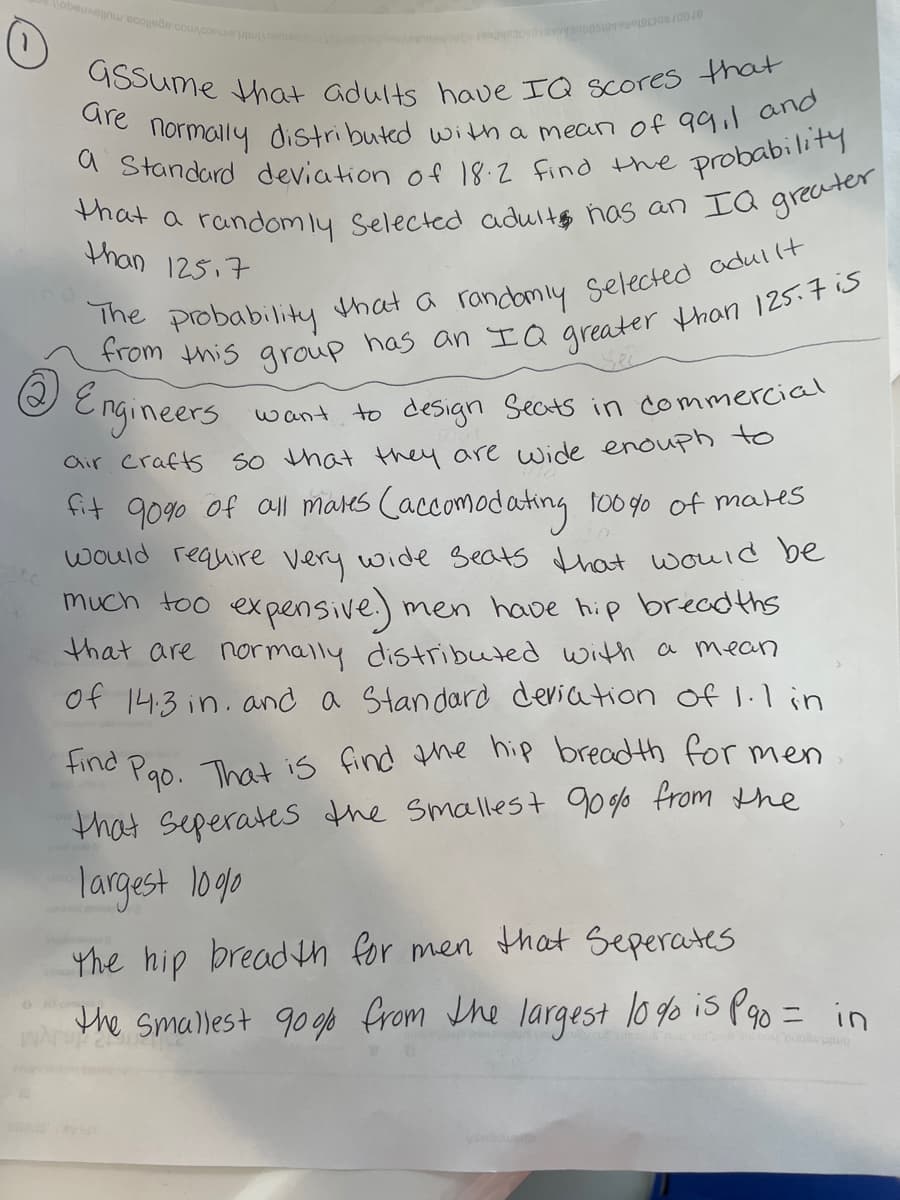 ①
assume that adults have IQ scores that
are normally distributed with a mean of 99.1 and
a standard deviation of 18.2 find the probability
that a randomly selected adults has an IQ greater
than 125.7
The probability that a randomly selected aduilt
from this group has an IQ greater than 125.7 is
② Engineers want to design Seats in commercial
air crafts so that they are wide enouph to
fit 90% of all males (accomodating 100% of males
would require very wide Seats that would be
much too expensive.) men have hip breadths
that are normally distributed with a mean
of 14.3 in. and a Standard deviation of 1.1 in
find P90. That is find the hip breadth for men
that seperates the smallest 90% from the
largest 10%
the hip breadth for men that Seperates
the smallest 90% from the largest 10% is P90 = in